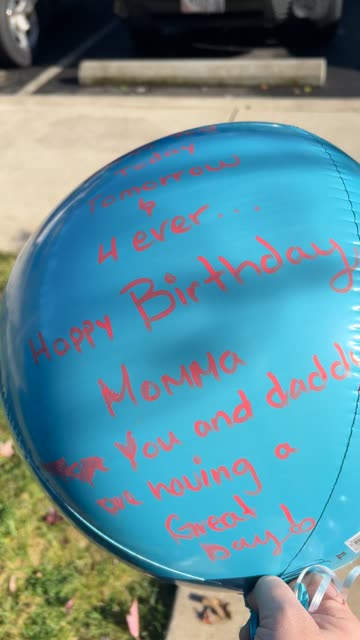 Today
Tomorrow
&
4 ever...
Happy Birthday
Momma
Hope you and daddy
are having a
Great
Day